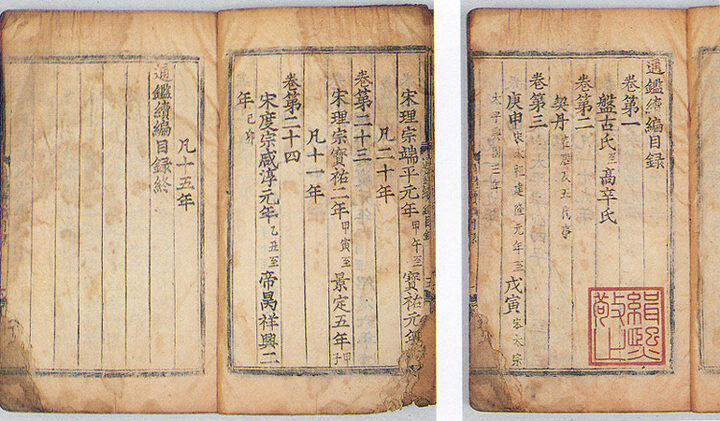 通鑑續編目録
卷第一
盤古氏至高辛氏
卷第二
契丹
卷第三
庚申宋太祖建隆元年至戊寅宋太宗
太平興國三年
宋理宗端平元年甲午至寶祐元年
凡二十年
卷第二十三
宋理宗寶祐二年甲寅至景定五年甲子
凡十一年
卷第二十四
宋度宗咸淳元年乙丑至帝昺祥興二
年己卯
凡十五年
通鑑續編目録終